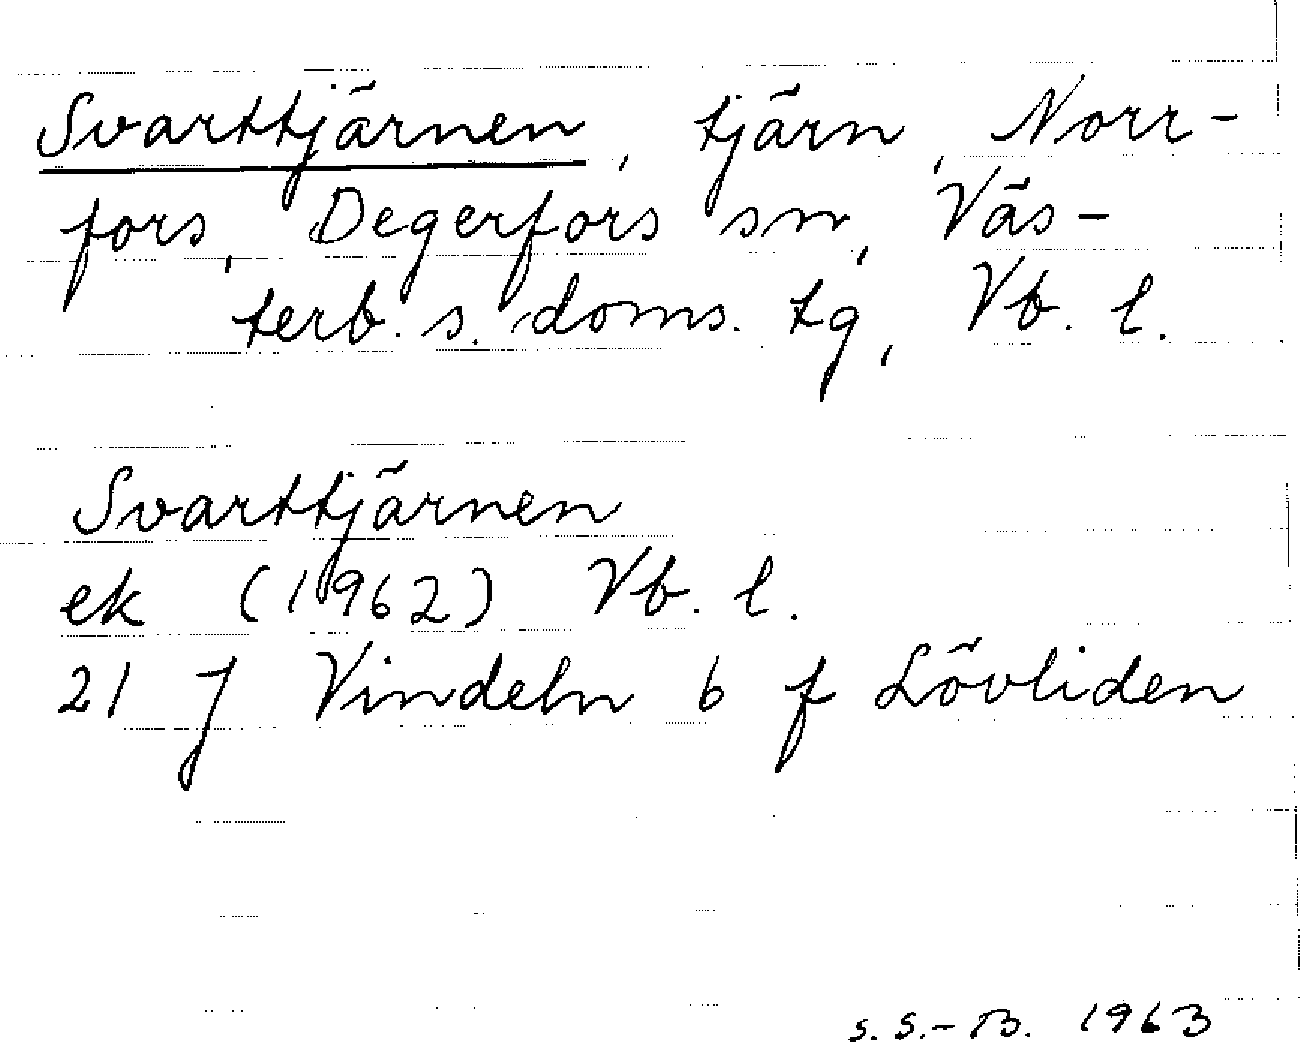 Svarttjärnen, tjärn, Norr-
fors, Degerfors sn, Väs-
terb. s. doms. tg, Vb. l.
Svarttjärnen
ek (1962) Vb. l.
21 J Vindeln 6 f Lövliden
s. S.-B. 1963